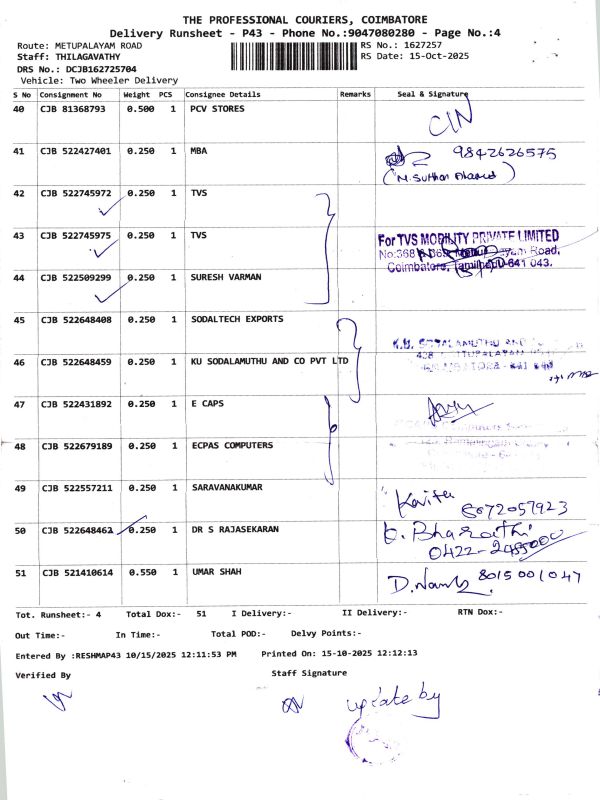 THE PROFESSIONAL COURIERS, COIMBATORE
Delivery Runsheet - P43 - Phone No.:9047080280 - Page No.:4
Route: METUPALAYAM ROAD RS No.: 1627257
Staff: THILAGAVATHY RS Date: 15-Oct-2025
DRS No.: DCJB162725704
Vehicle: Two Wheeler Delivery
S No Consignment No Weight PCS Consignee Details Remarks Seal & Signature
40 CJB 81368793 0.500 1 PCV STORES
41 CJB 522427401 0.250 1 MBA 9842626575
42 CJB 522745972 0.250 1 TVS
43 CJB 522745975 0.250 1 TVS
For TVS MOBILITY PRIVATE LIMITED
Coimbatore, Tamilnadu-641 043.
44 CJB 522509299 0.250 1 SURESH VARMAN
45 CJB 522648408 0.250 1 SODALTECH EXPORTS
46 CJB 522648459 0.250 1 KU SODALAMUTHU AND CO PVT LTD
47 CJB 522431892 0.250 1 E CAPS
48 CJB 522679189 0.250 1 ECPAS COMPUTERS
49 CJB 522557211 0.250 1 SARAVANAKUMAR
Kavita
50 CJB 522648462 0.250 1 DR S RAJASEKARAN
51 CJB 521410614 0.550 1 UMAR SHAH 8015001047
Tot. Runsheet:- 4 Total Dox:- 51 I Delivery:- II Delivery:- RTN Dox:-
Out Time:- In Time:- Total POD:- Delvy Points:-
Entered By :RESHMAP43 10/15/2025 12:11:53 PM Printed On: 15-10-2025 12:12:13
Verified By Staff Signature
update by